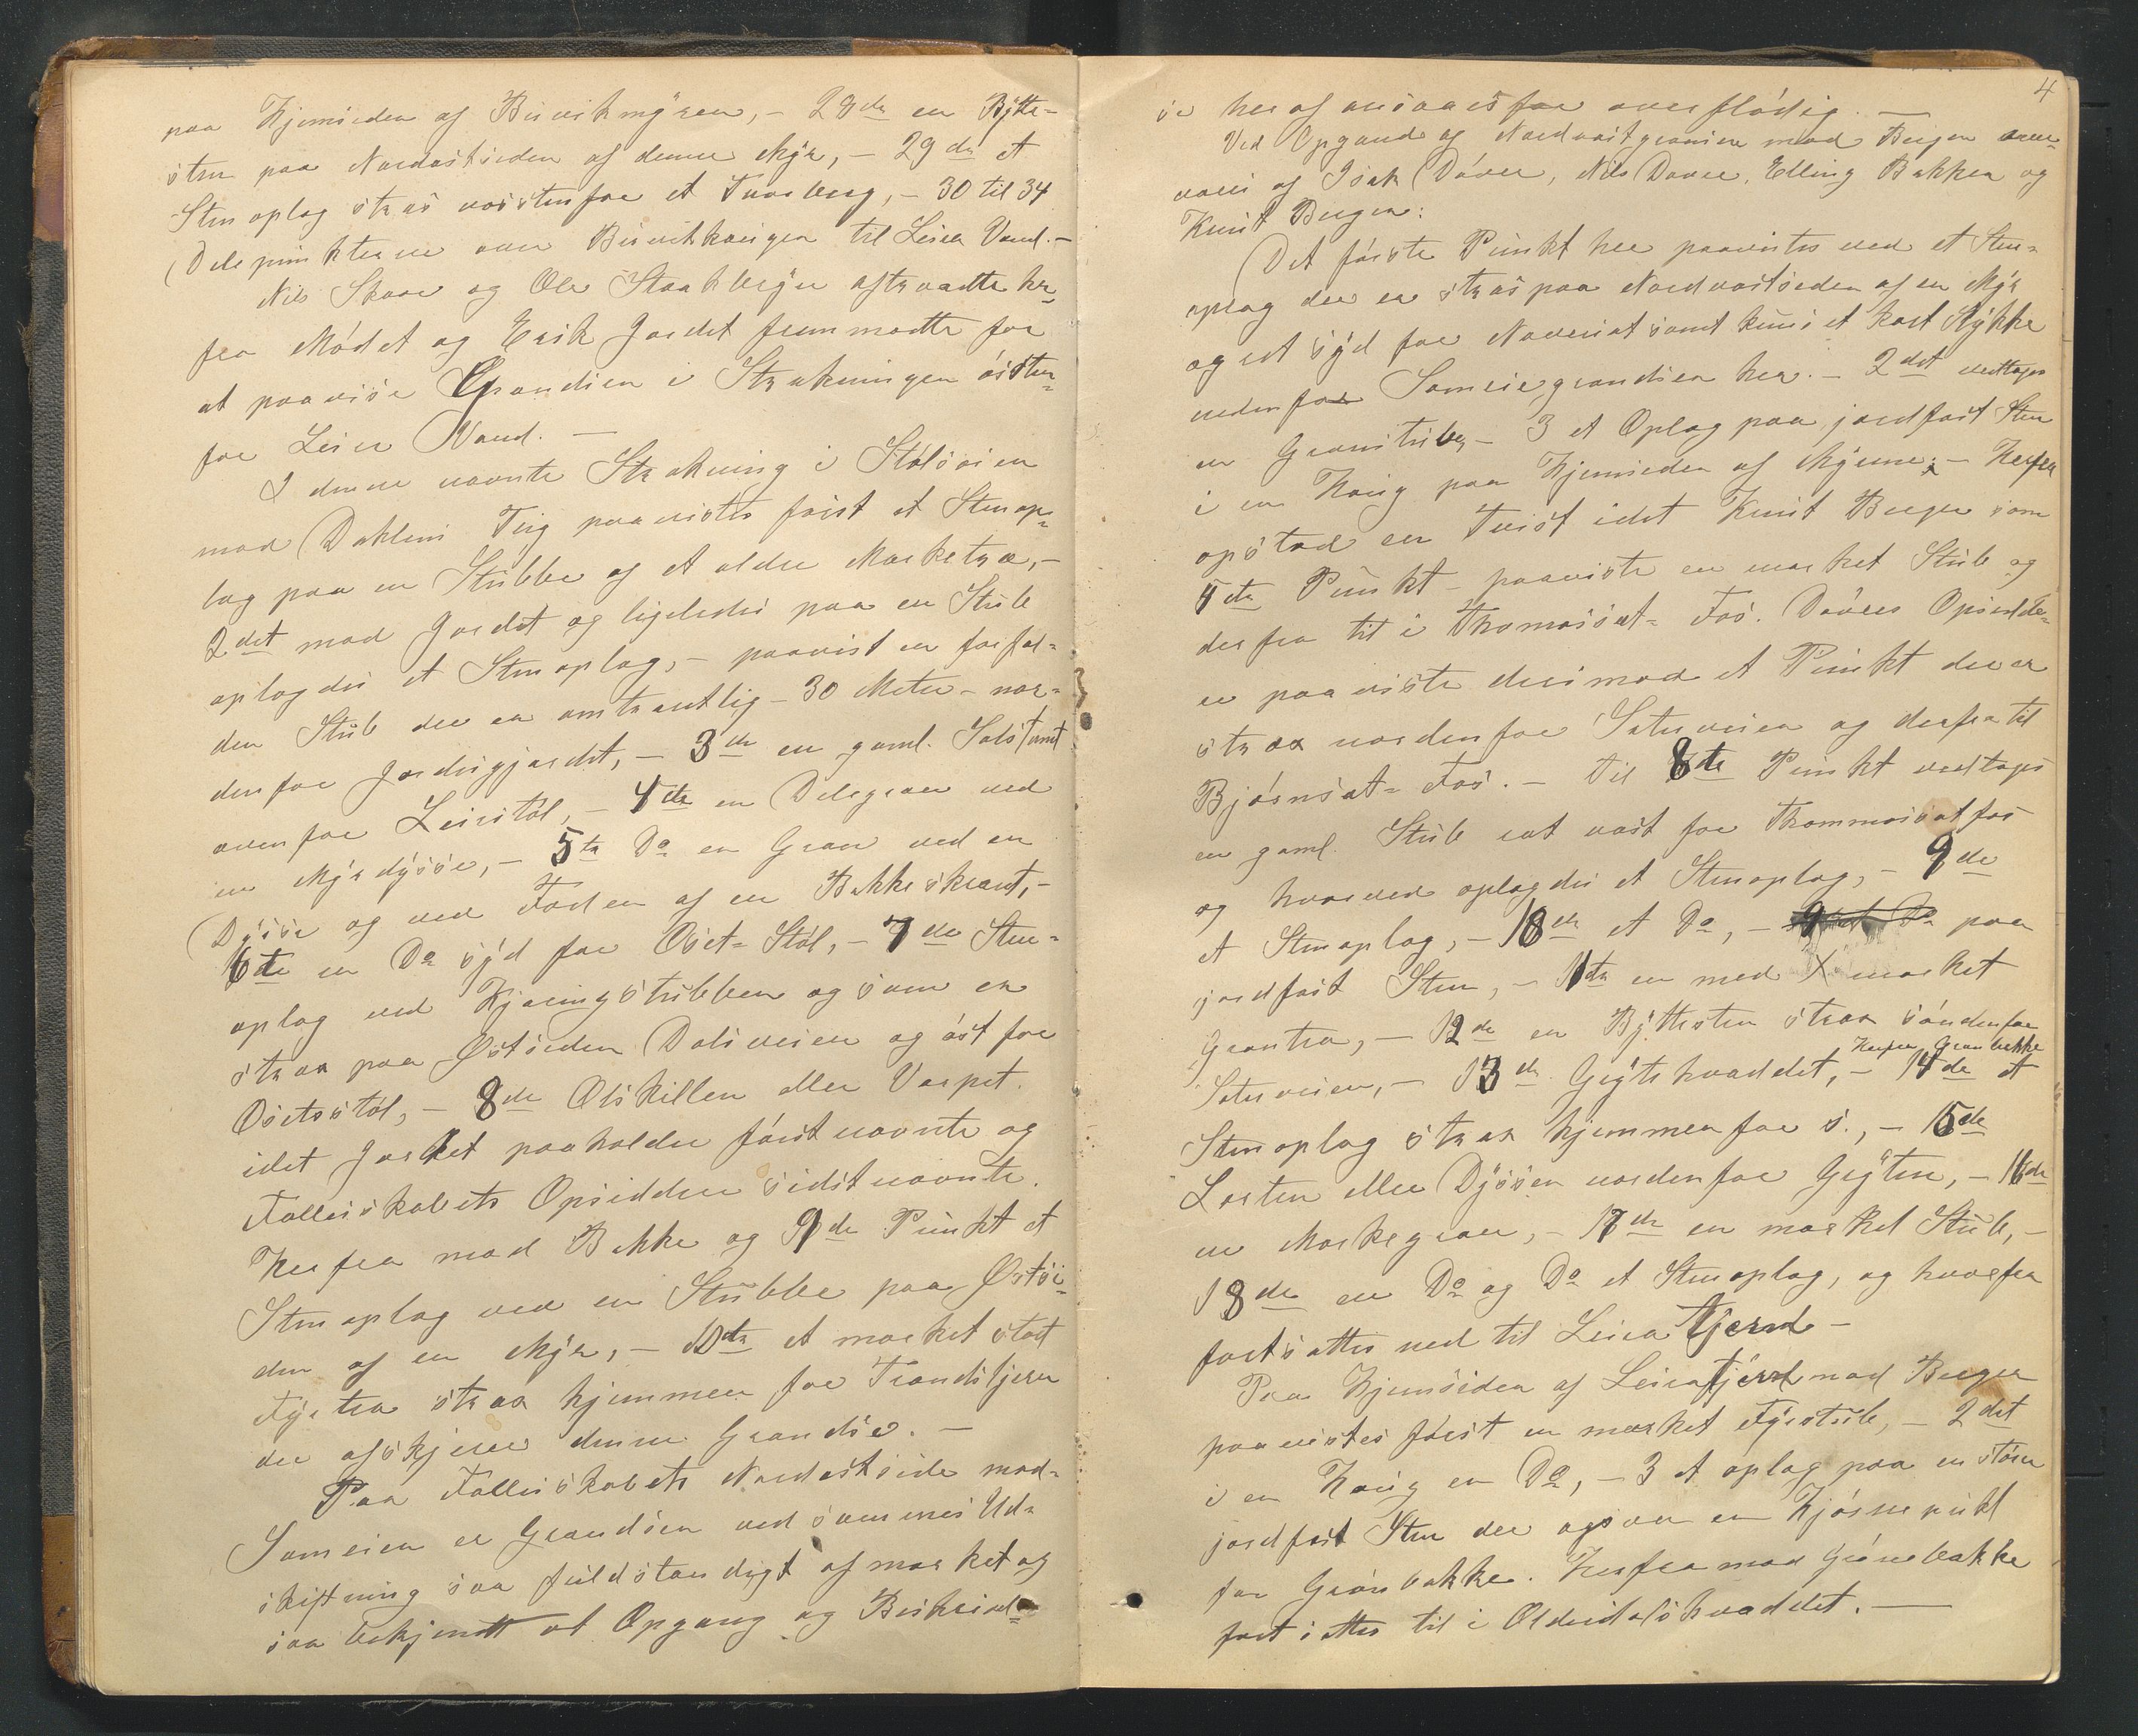 paa Hjemsiden af Biuvikmÿren, - 28de en Bÿtte-
sten paa Nordøstsiden af denne Mÿr, - 29de et
Stenoplag strax vestenfor et Tuvsberg, - 30 til 34
Delepunkterne over Biuvikhaugen til Leira Vand. -
Nils Skare og Ole Staakbergen aftraadte her-
fra Mödet og Erik Jordet fremmødte for
at paavise Grændsen i Strækningen østen-
for Leira Vand. -
I denne nævnte Strækning i Stölsvien
mod Dahlens Teig paavistes först et Stenop-
lag paa en Stubbe af et ældre Mærketræ, -
2det mod Jordet og ligeledes paa en Stub
oplagdes et Stenoplag, - paavist en forfal-
den Stub der er omtrentlig - 30 Meter - nor-
denfor Jordesgjærdet, - 3de en gaml. Salstomt
ovenfor Leirstöl, - 4de en Delegran ved
en Mÿrdÿsse, - 5te Do en Gran ved en
Dÿsse og ved Foden af en Bakkeskrent, -
6te en Do sÿd for Oset-Stöl, - 7de Sten-
oplag ved Kjæringstubben og som er
strax paa Østsiden Dalsveien og öst for
Osetsstöl, - 8de Olskillen eller Varpet.
idet Jordet paaholder förstnævnte og
Fællesskabets Opsiddere sidstnævnte.
Herfra mod Bakke og 9de Punkt et
Stenoplag ved en Stubbe paa Østsi-
den af en Mÿr, - 10de et mærket stort
Fÿrtræ strax hjemmen for Trandstjern
der afskjærer denne Grændse. -
Paa Fællesskabets Nordøstside mod
Sameien er Grændsen ved sammes Ud-
skiftning saa fuldstændigt afmærket og
saa bekjendt at Opgang og Beskrivel-
4
se heraf ansaaes for overflödig. -
Ved Opgand af Nordvestgrænsen mod Bergen over-
væres af Isak Döver, Nils Döver, Elling Bakken og
Knut Bergen:
Det förste Punkt her paavistes ved et Sten-
oplag der er strax paa Nordvestsiden af en Mÿr
og ret sÿd for Naverset samt kuns et kort Stÿkke
nedenfor Sameiegrændsen her. - 2det vedtages
en Granstubbe, - 3 et Oplag paa jordfast Sten
i en Haug paa Hjemsiden af Mÿrene. - Herfra
opstod en Tvist idet Knut Bergen som
4de Punkt - paaviste en mærket Stub og
derfra til i Thomasset-Fos. Dövers Opsidde-
re paaviste derimod et Punkt der er
strax nordenfor Sæterveien og derfra til
Bjørnset-Fos. - Til 8de Punkt vedtages
en gaml. Stub ret vest for Thommassetfos
og hvorved oplagdes et Stenoplag, - 9de
et Stenoplag, - 10de et Do, - paa
jordfast Sten, - 11te en med X mærket
Grantræ, - 12de en Bÿttesten strax söndenfor
Sæterveien, - 13de Gÿgtehvaddet, - 14de et
Herfra Grønbakke
Stenoplag strax hjemmenfor s., - 15de
Lorten eller Dÿssen nordenfor Gÿgten, - 16de
en Mærkegran, - 17de en mærket Stub, -
18de en Do og Do et Stenoplag, og hvorfra
fortsættes ned til Leira Tjernd -
Paa Hjemsiden af Leiratjernd mod Bergen
paavistes först en mærket Fÿrstub, - 2det
i en Haug en Do, - 3 et oplag paa en större
jordfast Sten der ogsaa er Hjörnepukt
for Grönbakke. Herfra mod Grönebakke
fortsættes til i Olderdalshvaddet. -